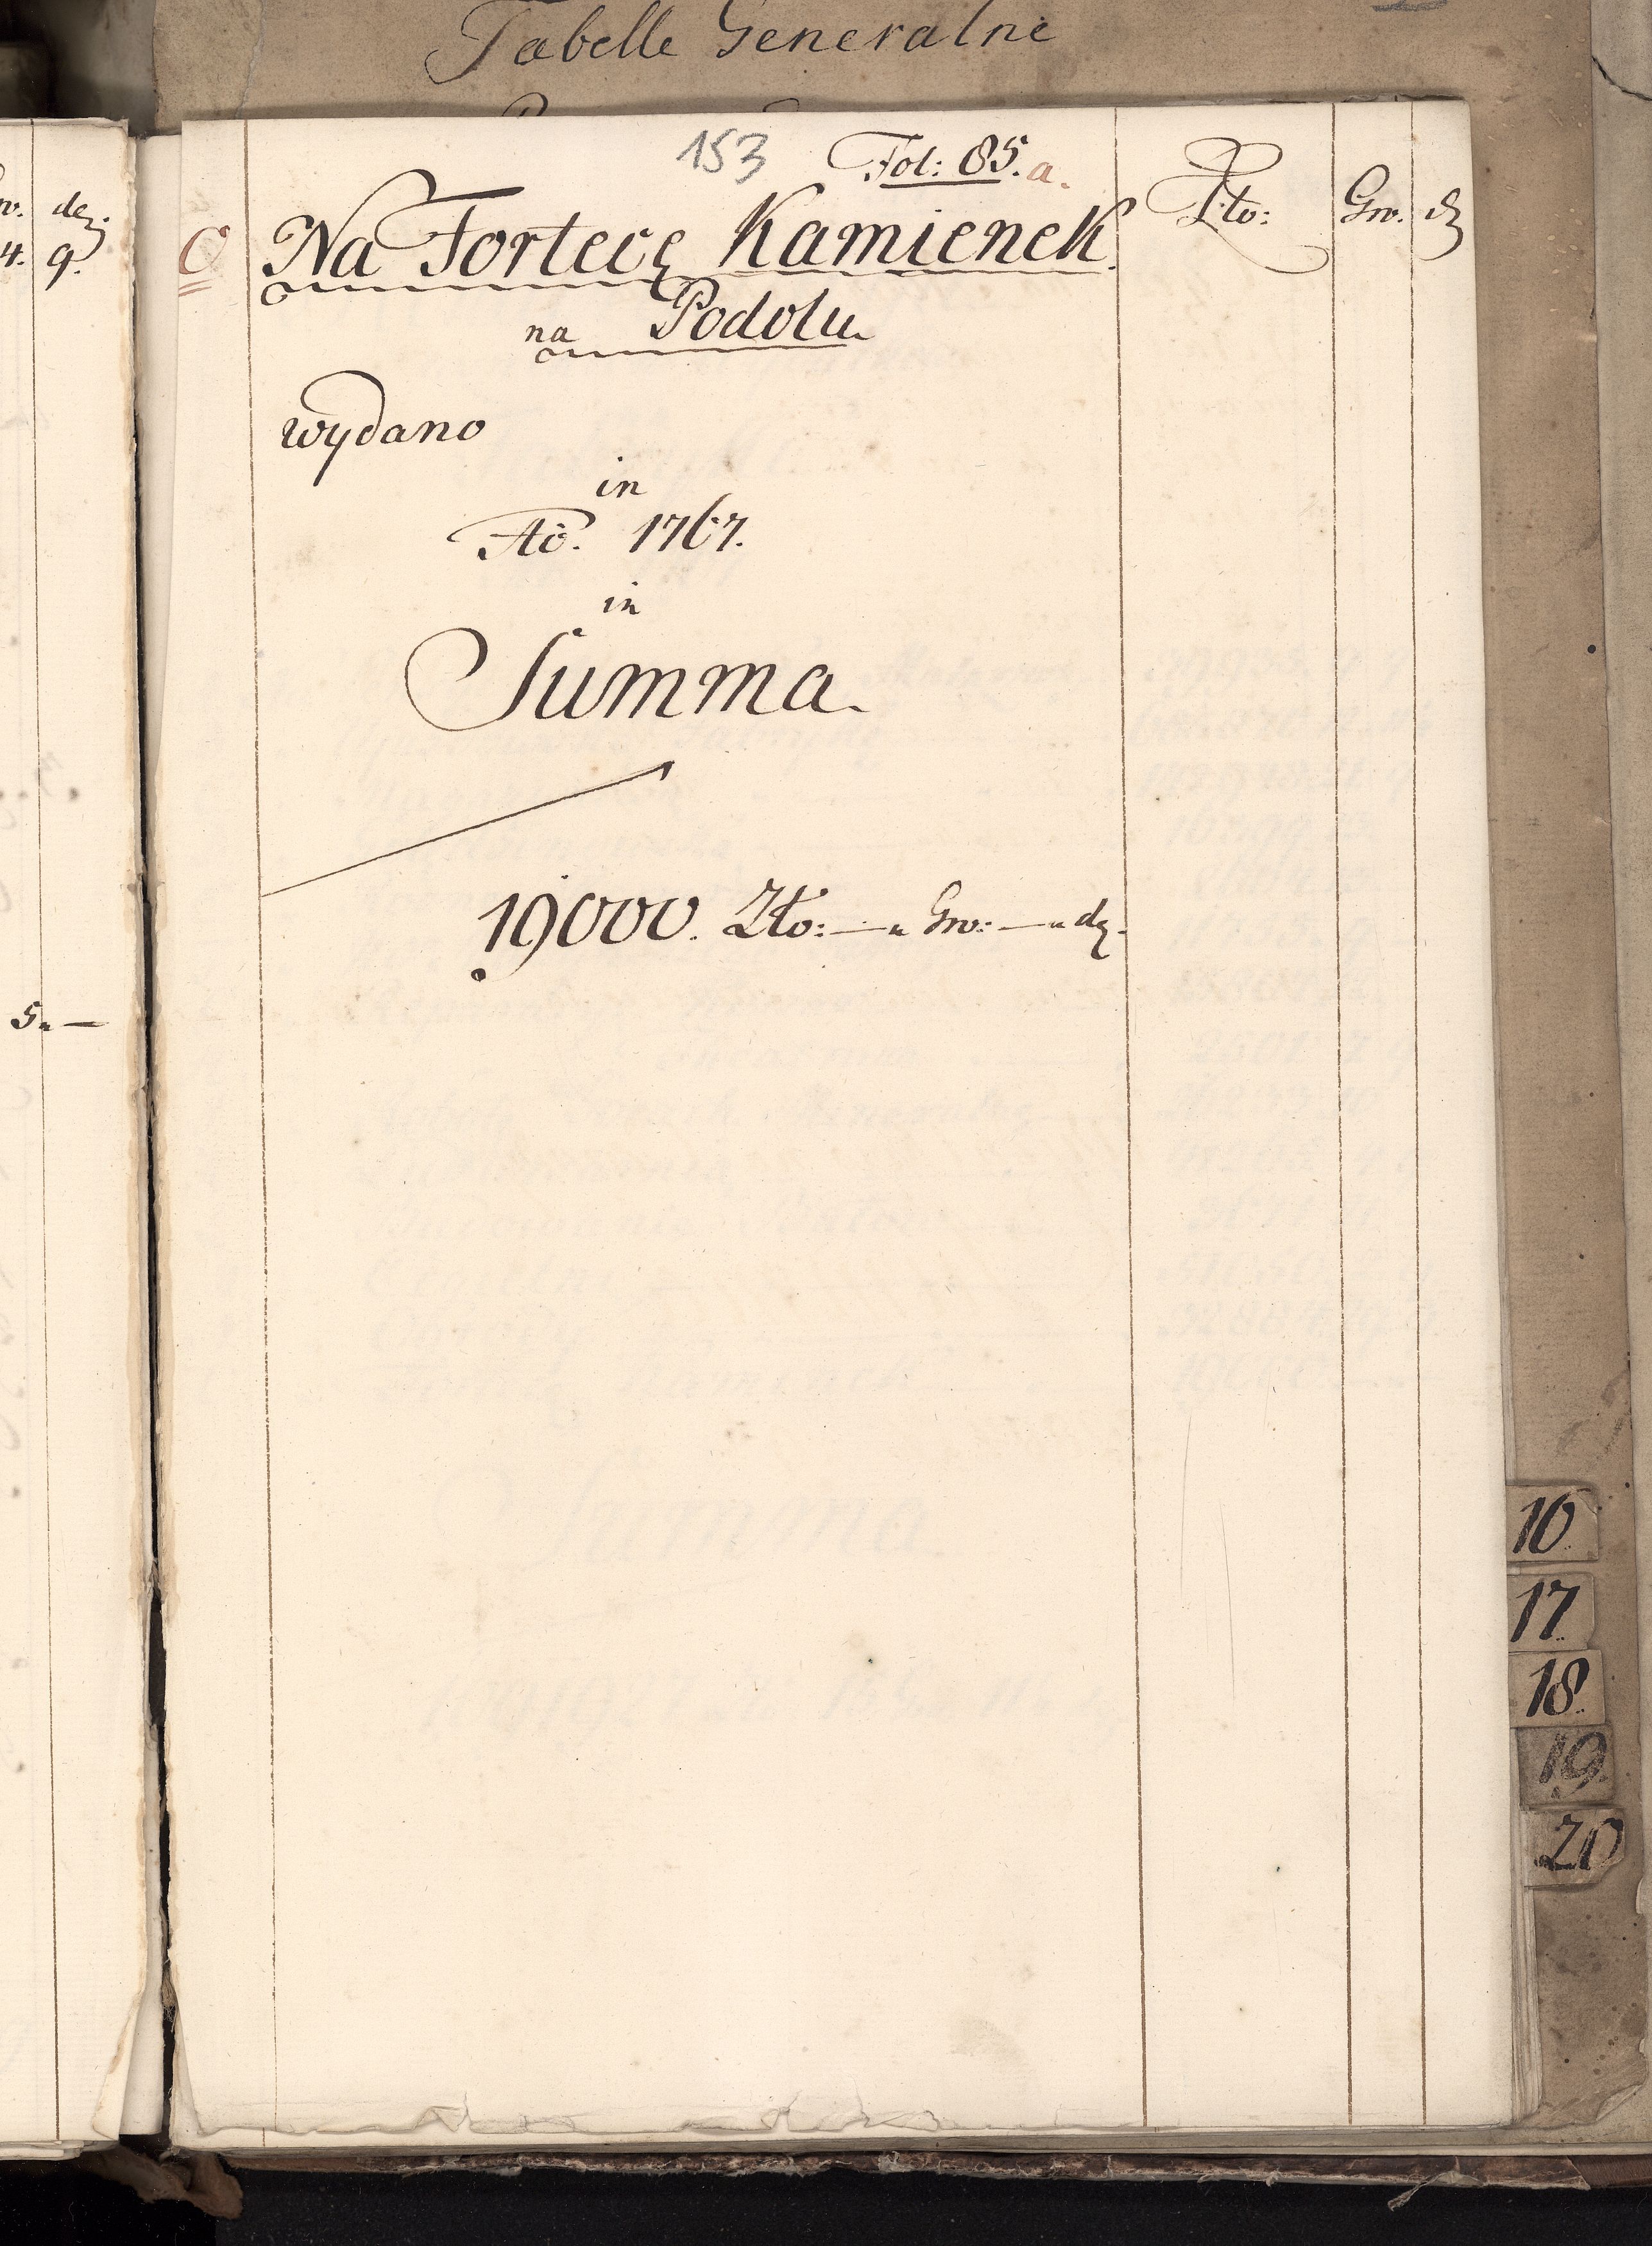 Tabelle Generalne
153 Fol: 85. a.
dez.
4. 9.
5„ —
O Na Fortecę Kamieniek Złto: Gro. dz
na Podolu
wydano
in
Aō. 1767.
in
Summa.
19000. Złto: —„ Gro: —„ dz.
16.
17.
18.
19.
20